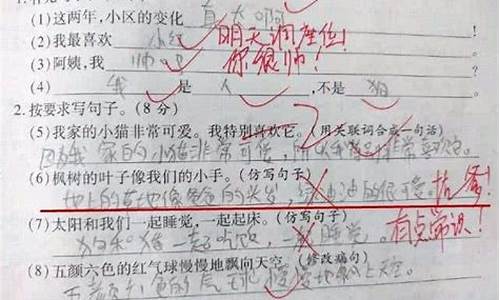 (1)这两年,小区的变化 真大啊
(2)我最喜欢 小红 明天调座位!
(3)阿姨,我 帅吗 你很帅!
(4) 我 是 人 ,不是 狗
2.按要求写句子。(8分)
(5)我家的小猫非常可爱。我特别喜欢它。(用关联词合成一句话)
因为我家的小猫非常可爱,所以我非常喜欢它。
(6)枫树的叶子像我们的小手。(仿写句子)
地上的草地像爸爸的头发,绿油油的很可爱。抗爹!
(7)太阳和我们一起睡觉,一起起床。(仿写句子)
狗和猪一起吃饭,一起睡觉。 有点常识!
(8)五颜六色的红气球慢慢地飘向天空。(修改病句)
五颜六色的气球慢慢地飘上天空。